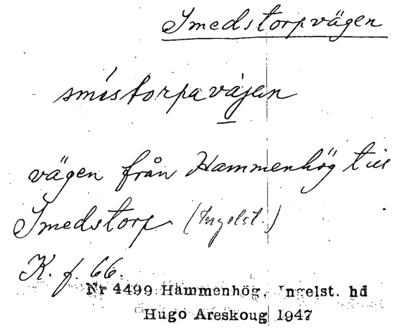 Smedstorpvägen
smístorpavájen
vägen från Hammenhög till
Smedstorp (Ingelst.)
K. f. 66.
Nr 4499 Hammenhög, Ingelst. hd
Hugo Areskoug 1947